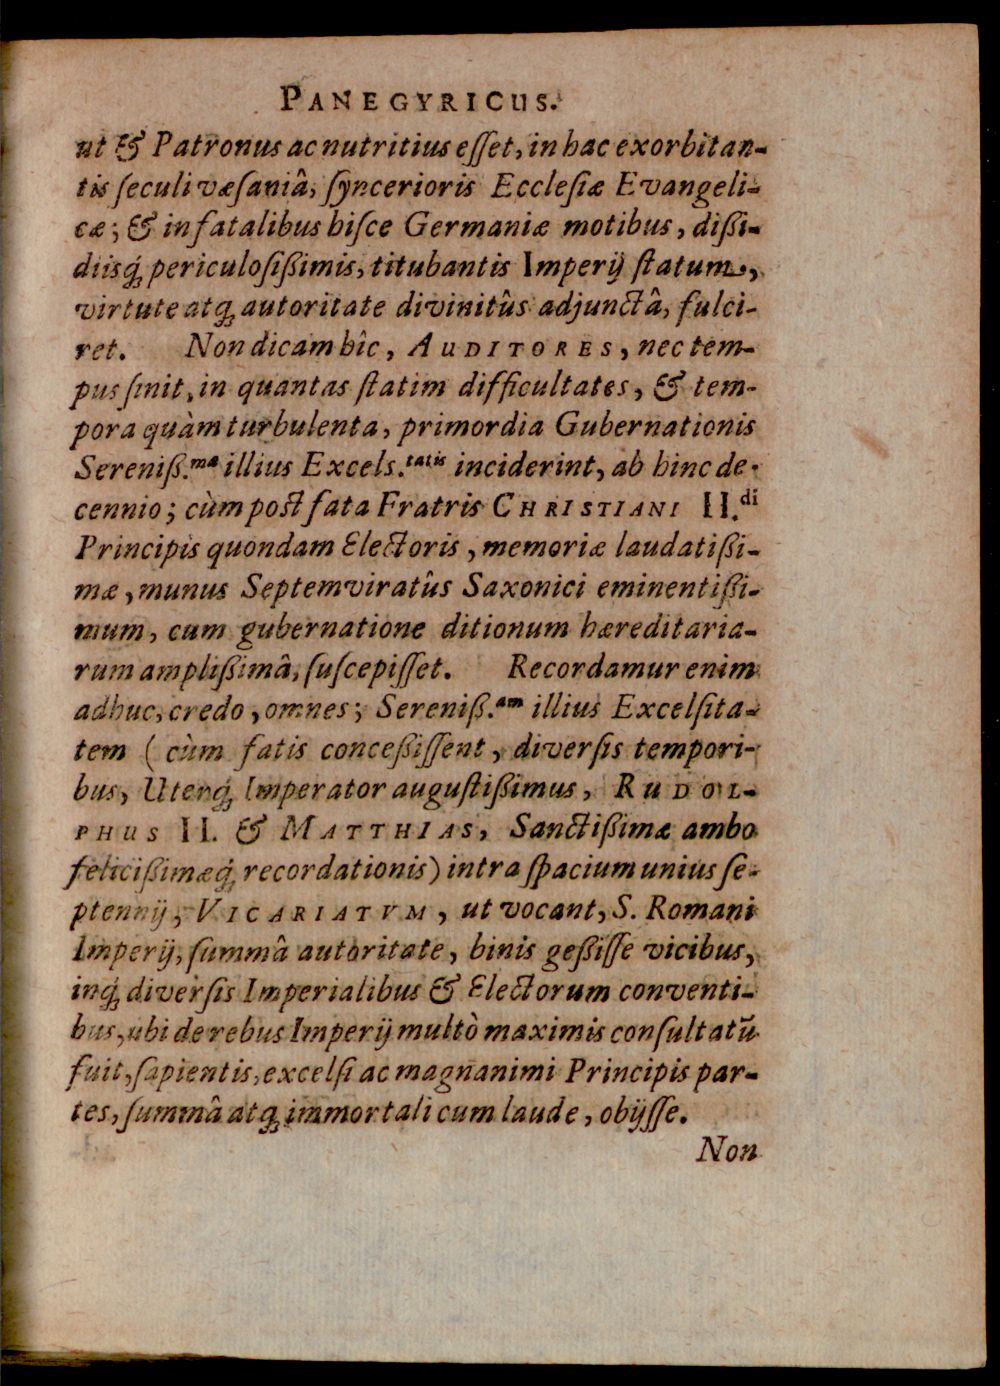 PANEGYRICUS.
ut & Patronus ac nutritius eſſet, in hac exorbitan-
tis ſeculi væſaniâ, ſyncerioris Eccleſiæ Evangeli-
cæ; & in fatalibus hiſce Germaniæ motibus, dißi-
diisq́; periculoſißimis, titubantis Imperij ſtatum,
virtute atq; autoritate divinitûs adjunctâ, fulci-
ret. Non dicam hîc, AUDITORES, nec tem-
pus ſinit, in quantas ſtatim difficultates, & tem-
pora quàm turbulenta, primordia Gubernationis
Sereniß.ᵐᵃ illius Excels.ᵗᵃᵗⁱˢ inciderint, ab hinc de-
cennio; cùm poſt fata Fratris CHRISTIANI II.ᵈⁱ
Principis quondam Electoris, memoriæ laudatißi-
mæ, munus Septemviratûs Saxonici eminentißi-
mum, cum gubernatione ditionum hæreditaria-
rum amplißimâ, ſuſcepiſſet. Recordamur enim
adhuc, credo, omnes; Sereniß.ᵃᵐ illius Excelſita-
tem (cùm fatis conceßiſſent, diverſis tempori-
bus, Uterq́; Imperator auguſtißimus, RUDOL-
PHUS II. & MATTHIAS, Sanctißimæ ambo
felicißimæq́; recordationis) intra ſpacium unius ſe-
ptennij, VICARIATVM, ut vocant, S. Romani
Imperij, ſummâ autoritate, binis geßiſſe vicibus,
inq́; diverſis Imperialibus & Electorum conventi-
bus, ubi de rebus Imperij multò maximis conſultatũ
fuit, ſapientis, excelſi ac magnanimi Principis par-
tes, ſummâ atq; immortali cum laude, obijſſe.
Non